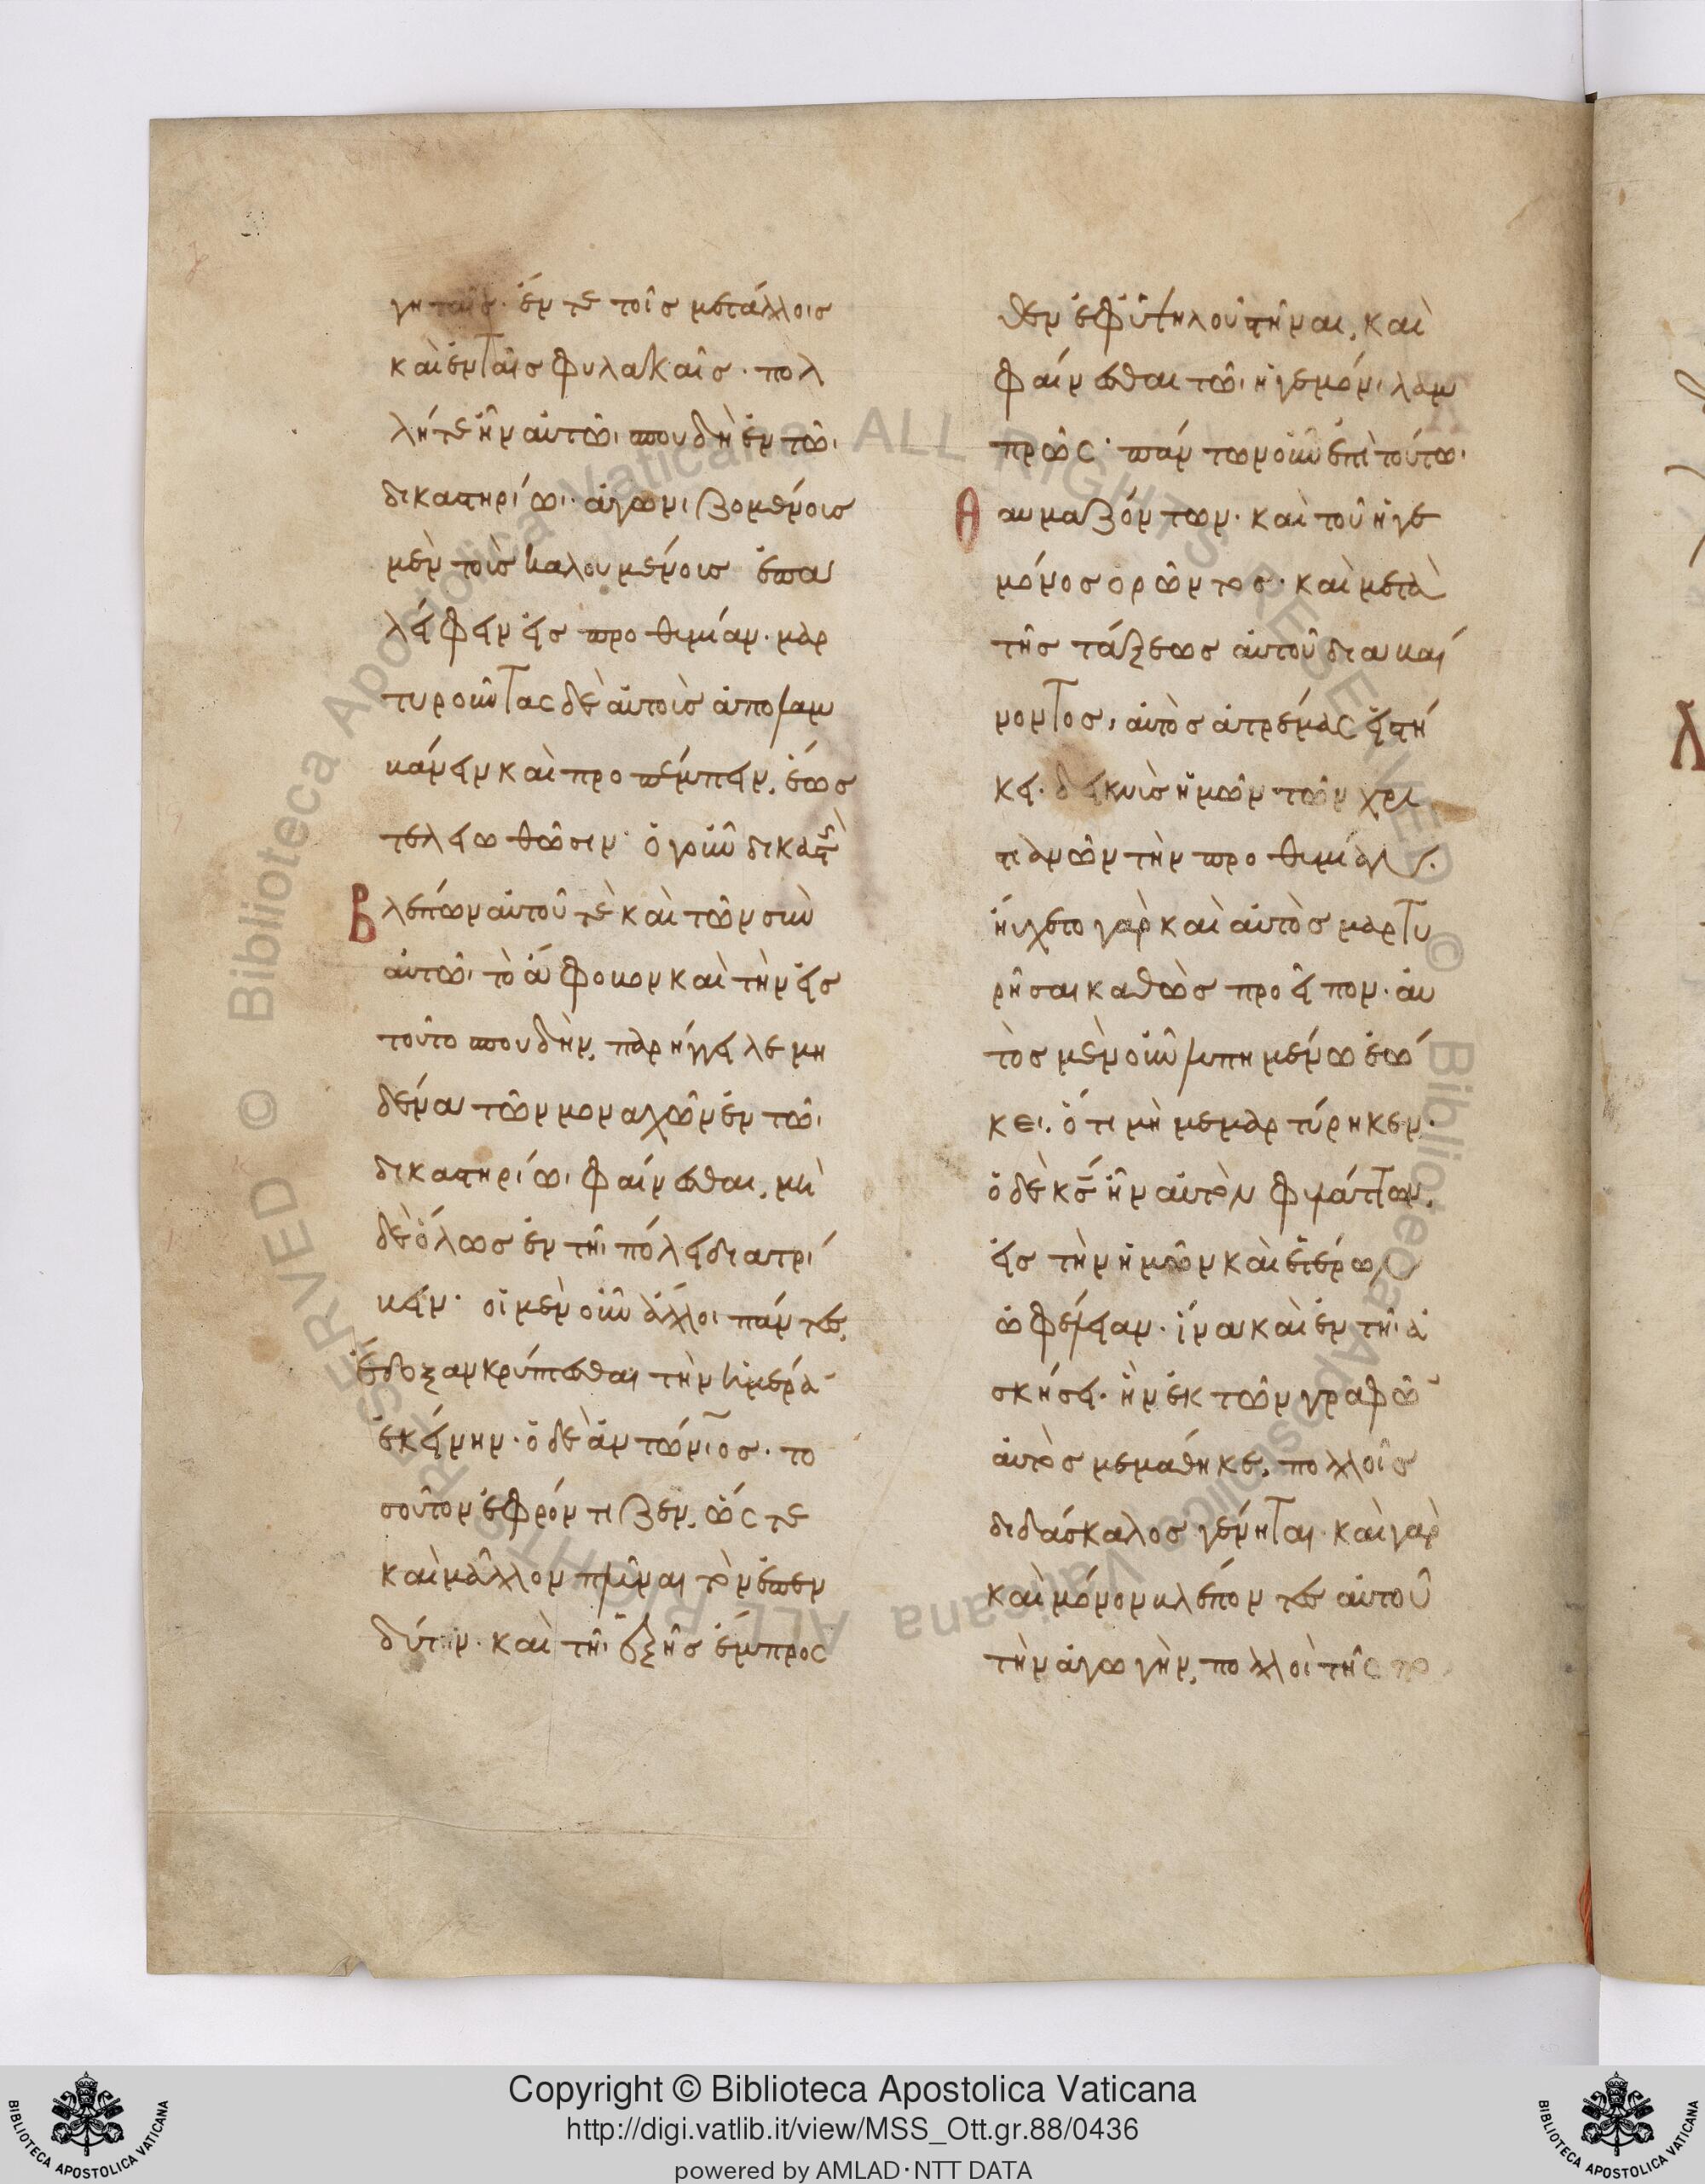 γηταῖς· ἔν τε τοῖς μετάλλοις
καὶ ἐν ταῖς φυλακαῖς· πολ
λή τε ἦν αὐτῶι σπουδὴ ἐν τῶι
δικαστηρίωι· ἀγωνιζομένοις
μὲν τοῖς καλουμένοις ἐπα
λείφειν εἰς προθυμίαν· μαρ
τυροῦντας δὲ αὐτοὺς ἀπολαμ
βάνειν καὶ προπέμπειν, ἕως
τελειωθῶσιν· ὁ γοῦν δικαστὴς
Βλέπων αὐτοῦ τὲ καὶ τῶν σὺν
αὐτῶι τὸ ἄφοβον καὶ τὴν εἰς
τοῦτο σπουδὴν, παρήγγειλε μη
δένα τῶν μοναχῶν ἐν τῶι
δικαστηρίωι φαίνεσθαι, μὴ
δὲ ὅλως ἐν τῆι πόλει διατρί
βειν· οἱ μὲν οὖν ἄλλοι πάντες,
ἔδοξαν κρύπτεσθαι τὴν ἡμέρα
ἐκείνην· ὁ δὲ ἀντώνιος· το
σοῦτον ἐφρόντιζεν, ὥς τε
καὶ μᾶλλον πλῦναι τὸν ἐπεν
δύτην· καὶ τῆι ἑξῆς ἔμπροσ
θεν ἐφ' ὑψηλοῦ στῆναι, καὶ
φαίνεσθαι τῶι ἡγεμόνι λαμ
πρῶς· πάντων οὖν ἐπὶ τούτω
Θαυμαζόντων· καὶ τοῦ ἡγε
μόνος ὁρῶντος· καὶ μετὰ
τῆς τάξεως αὐτοῦ διαβαί
νοντος, αὐτὸς ἀτρέμας εἱστή
κει· δεικνὺς ἡμῶν τῶν χρι
στιανῶν τὴν προθυμίαν·
ηὔχετο γὰρ καὶ αὐτὸς μαρτυ
ρῆσαι καθὼς προεῖπον· αὐ
τὸς μὲν οὖν λυπημένω ἐώ
κει· ὅτι μὴ μεμαρτύρηκεν·
ὁ δὲ κς ἦν αὐτὸν φυλάττων,
εἰς τὴν ἡμῶν καὶ ἑτέρων
ὠφέλειαν· ἵνα καὶ ἐν τῆι ἀ
σκήσει· ἣν ἐκ τῶν γραφῶ
αὐτὸς μεμάθηκε, πολλοῖς
διδάσκαλος γένηται· καὶ γὰρ
καὶ μόνον βλέποντες αὐτοῦ
τὴν ἀγωγὴν, πολλοὶ τῆς το
Copyright © Biblioteca Apostolica Vaticana
http://digi.vatlib.it/view/MSS_Ott.gr.88/0436
powered by AMLAD·NTT DATA